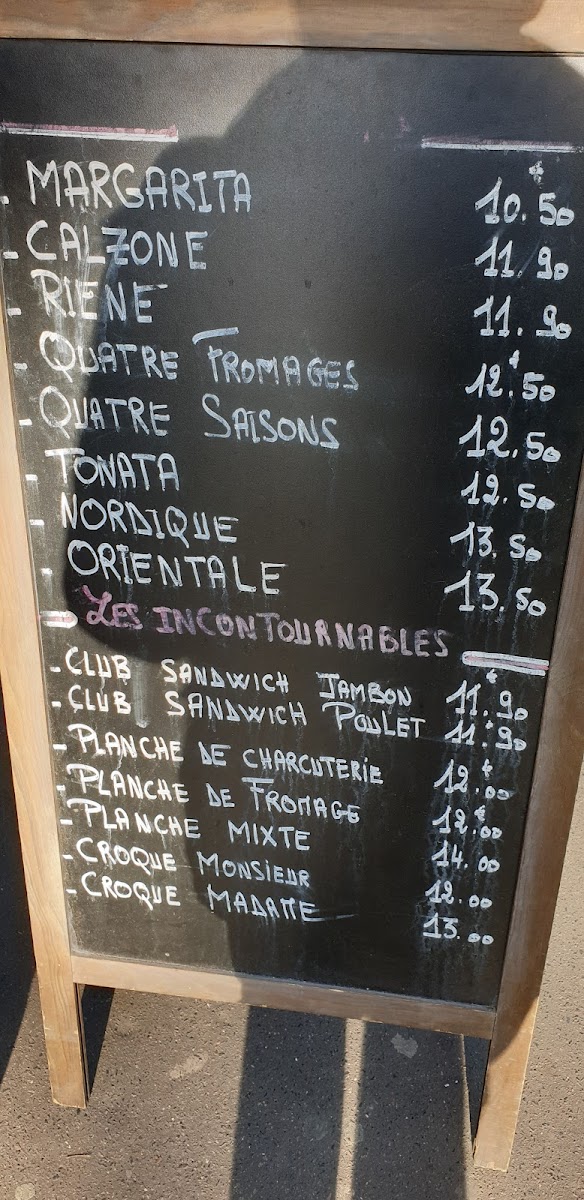 - MARGARITA 10.50
- CALZONE 11.90
- RIENE 11.90
- QUATRE FROMAGES 12.50
- QUATRE SAISONS 12.50
- TONATA 12.50
- NORDIQUE 13.50
- ORIENTALE 13.50
LES INCONTOURNABLES
- CLUB SANDWICH JAMBON 11.90
- CLUB SANDWICH POULET 11.90
- PLANCHE DE CHARCUTERIE 12.00
- PLANCHE DE FROMAGE 12.00
- PLANCHE MIXTE 14.00
- CROQUE MONSIEUR 12.00
- CROQUE MADAME 13.00